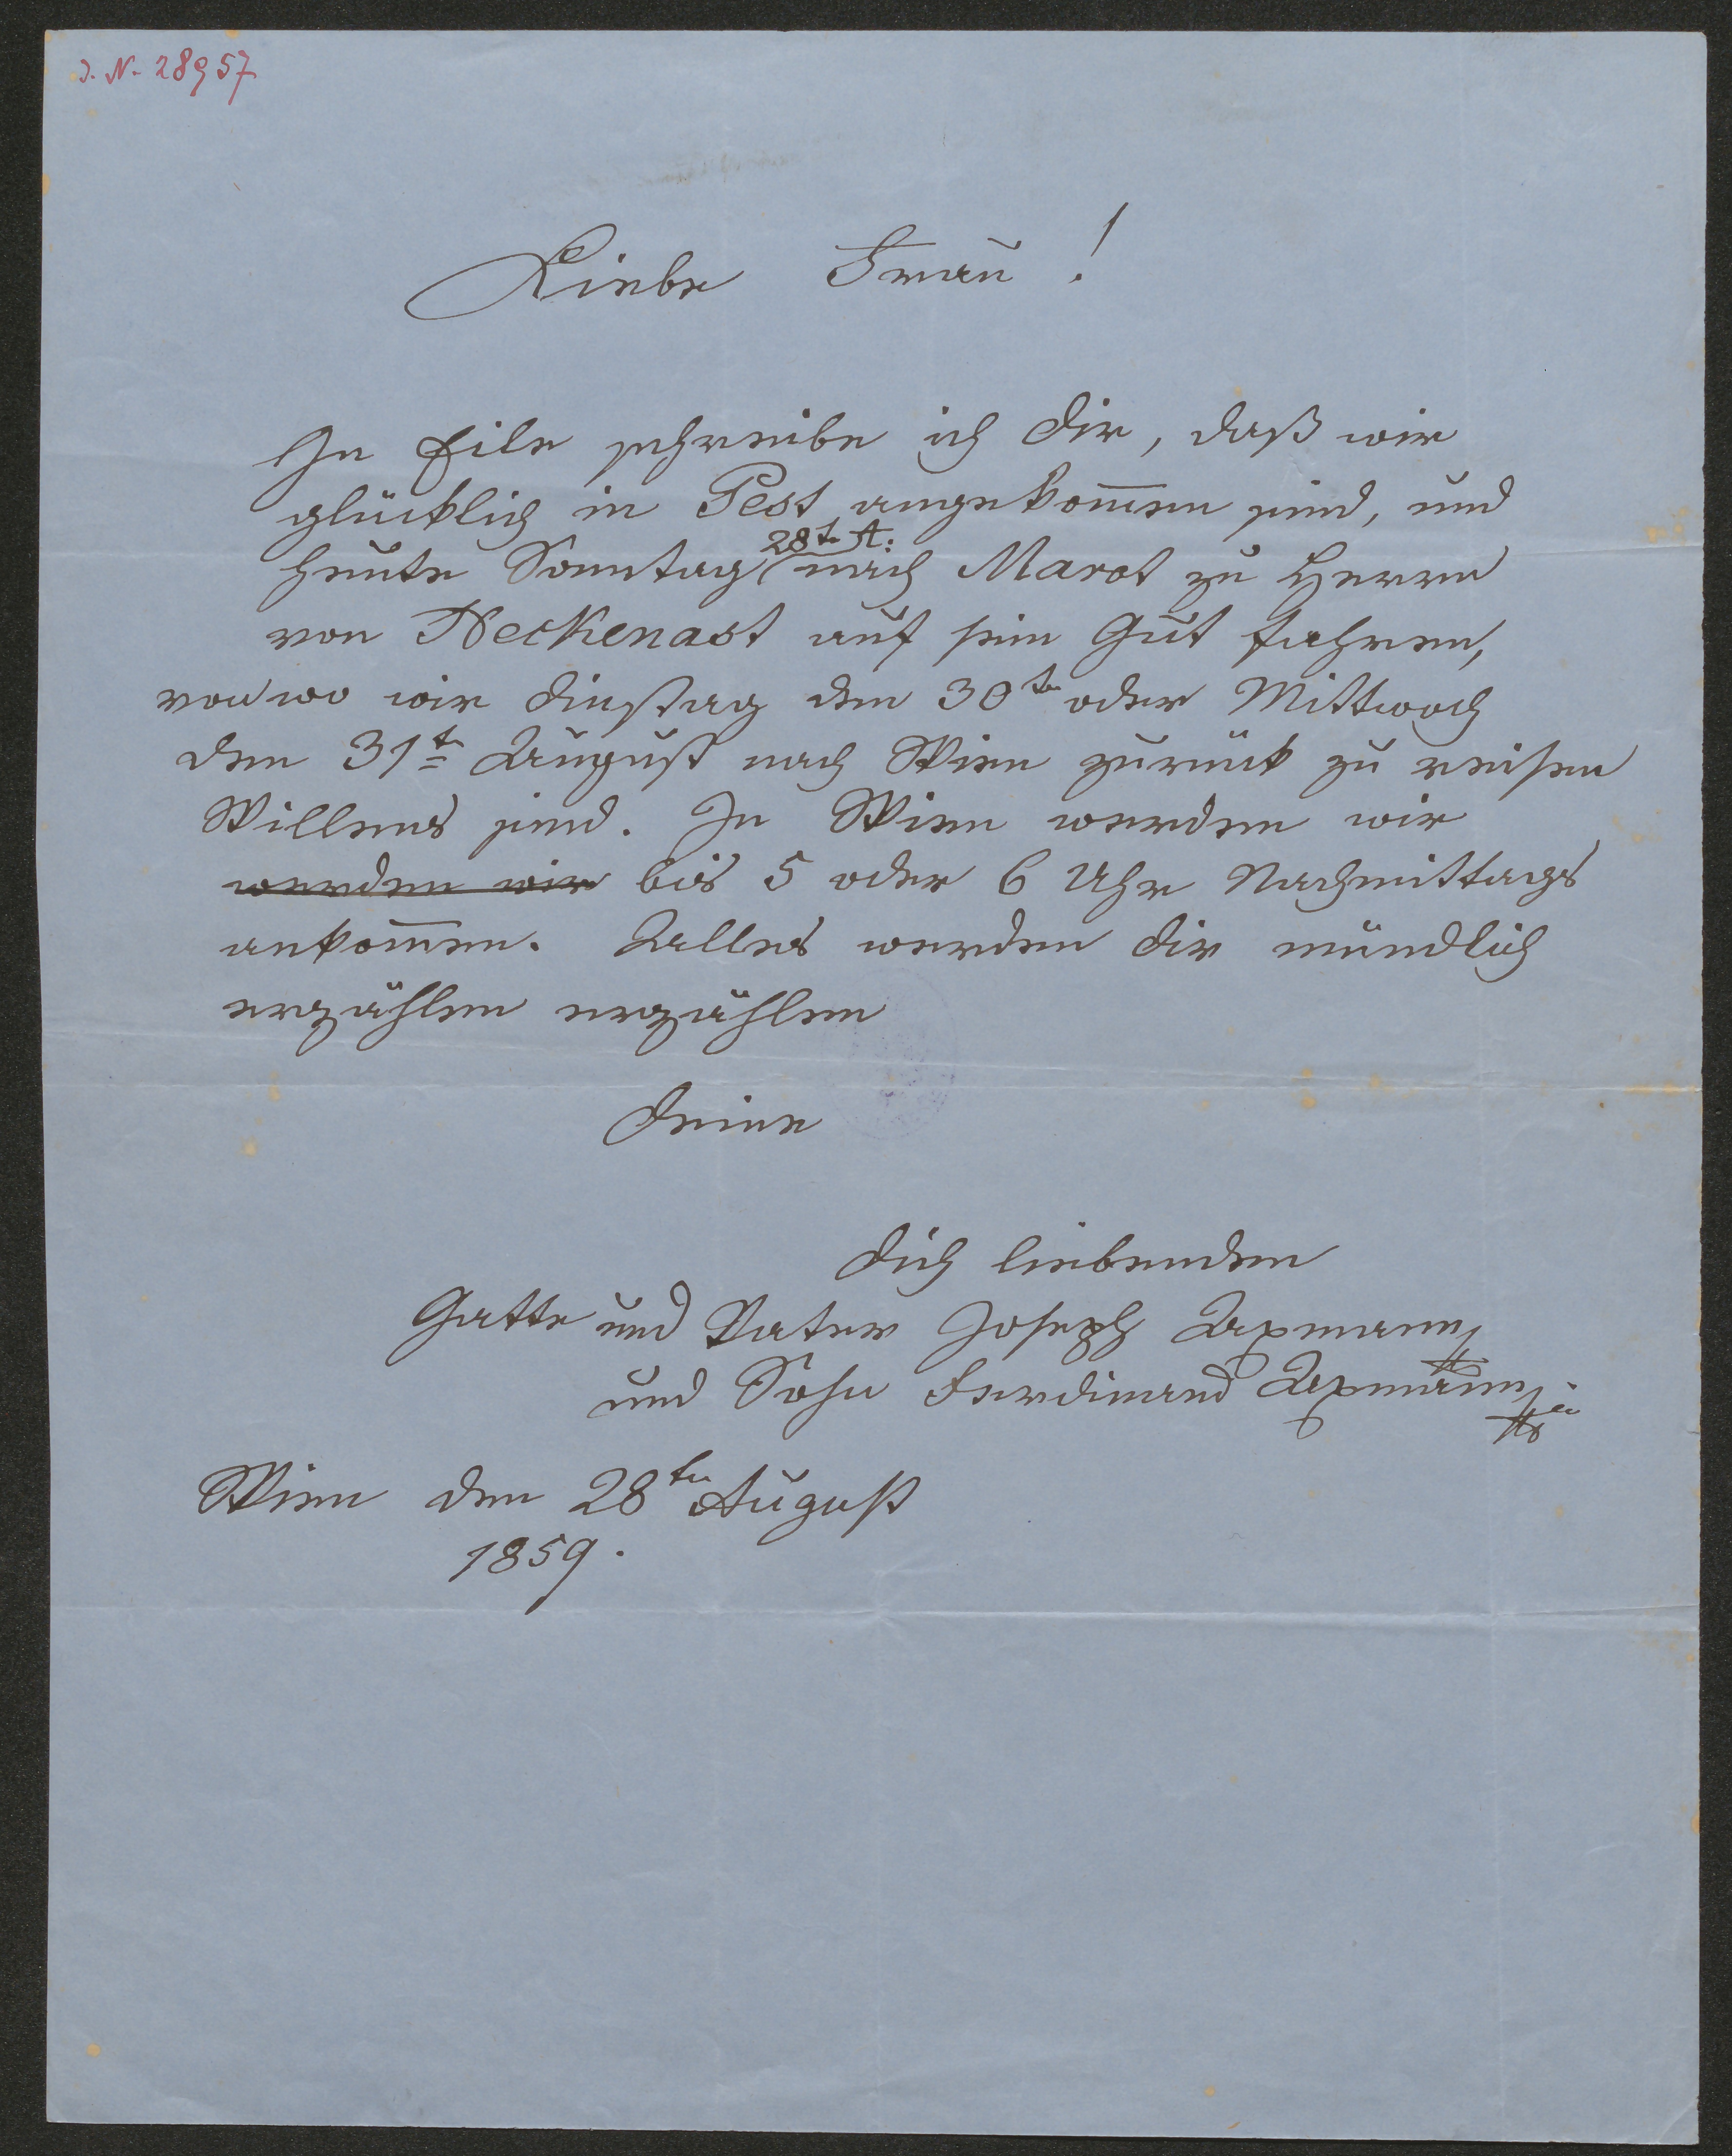 J. N. 28957
Liebe Frau!
In Eile schreibe ich dir, daß wir
glücklich in Pest angekom̅en sind, und
28t. A:
heute Sonntag nach Marot zu Herrn
von Heckenast auf sein Gut fahren,
von wo wir dinstag den 30te oder Mittwoch
den 31t August nach Wien zurück zu reisen
Willens sind. In Wien werden wir
werden wir bis 5 oder 6 Uhr Nachmittags
ankom̅en. Alles werden dir mündlich
erzählen erzählen
deine
dich liebenden
Gatte und Vater Joseph Axmann
und Sohn Ferdinand Axmann
Wien den 28ten August
1859.